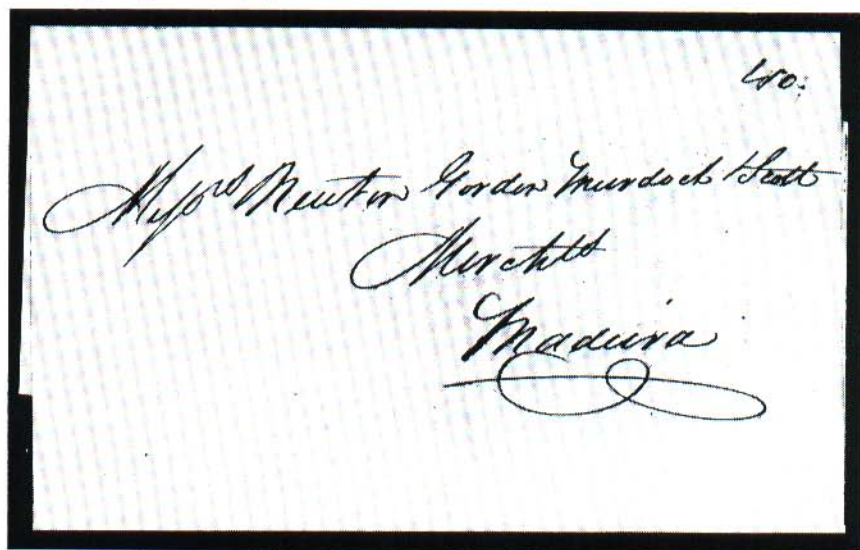 Messrs Newton Gordon Murdoch & Scott
Merchts
Madeira